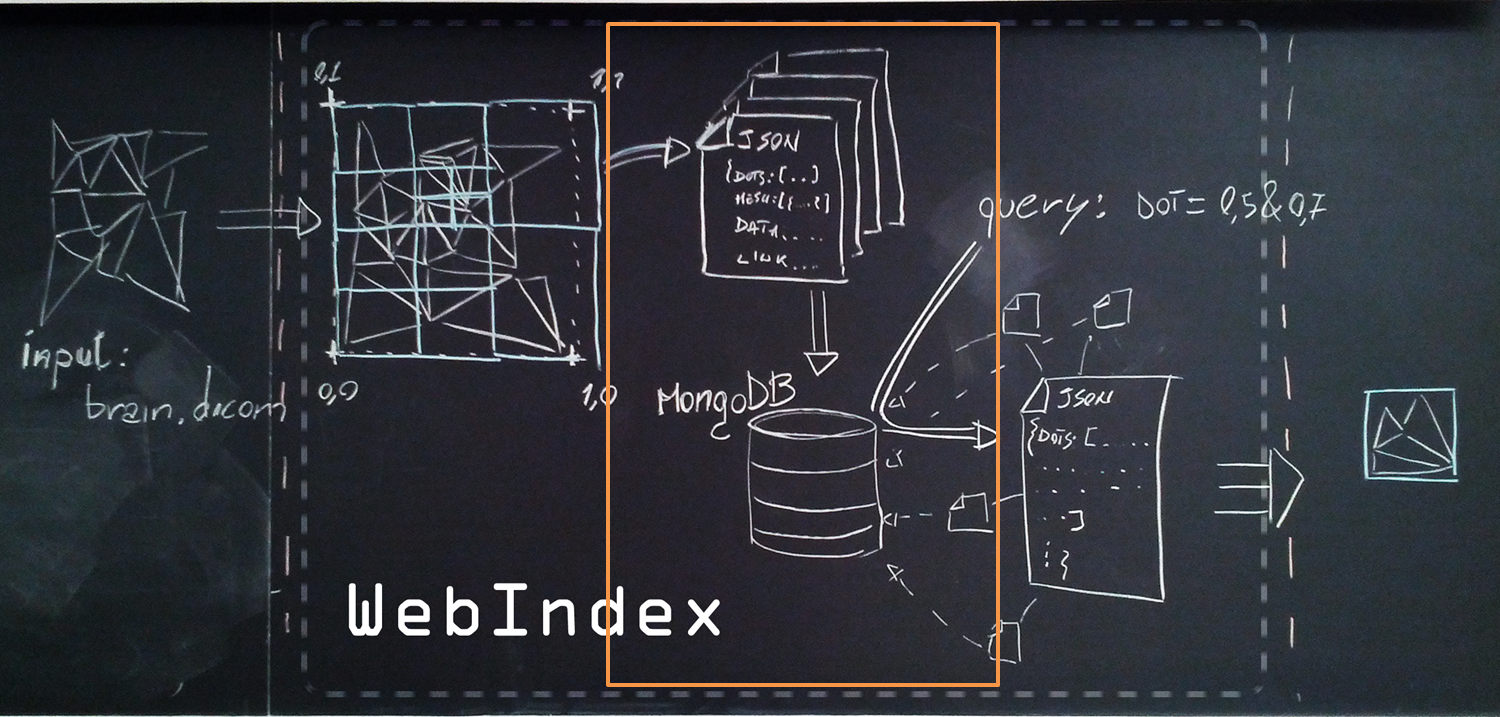 input:
brain.dicom
0,1
1,1
0,0
1,0
JSON
{DOTS:[..]
MESH:[{...}]
DATA.....
LINK...
MongoDB
query: DOT = 0,5&0,7
JSON
{DOTS:[.....
..]
:}
WebIndex